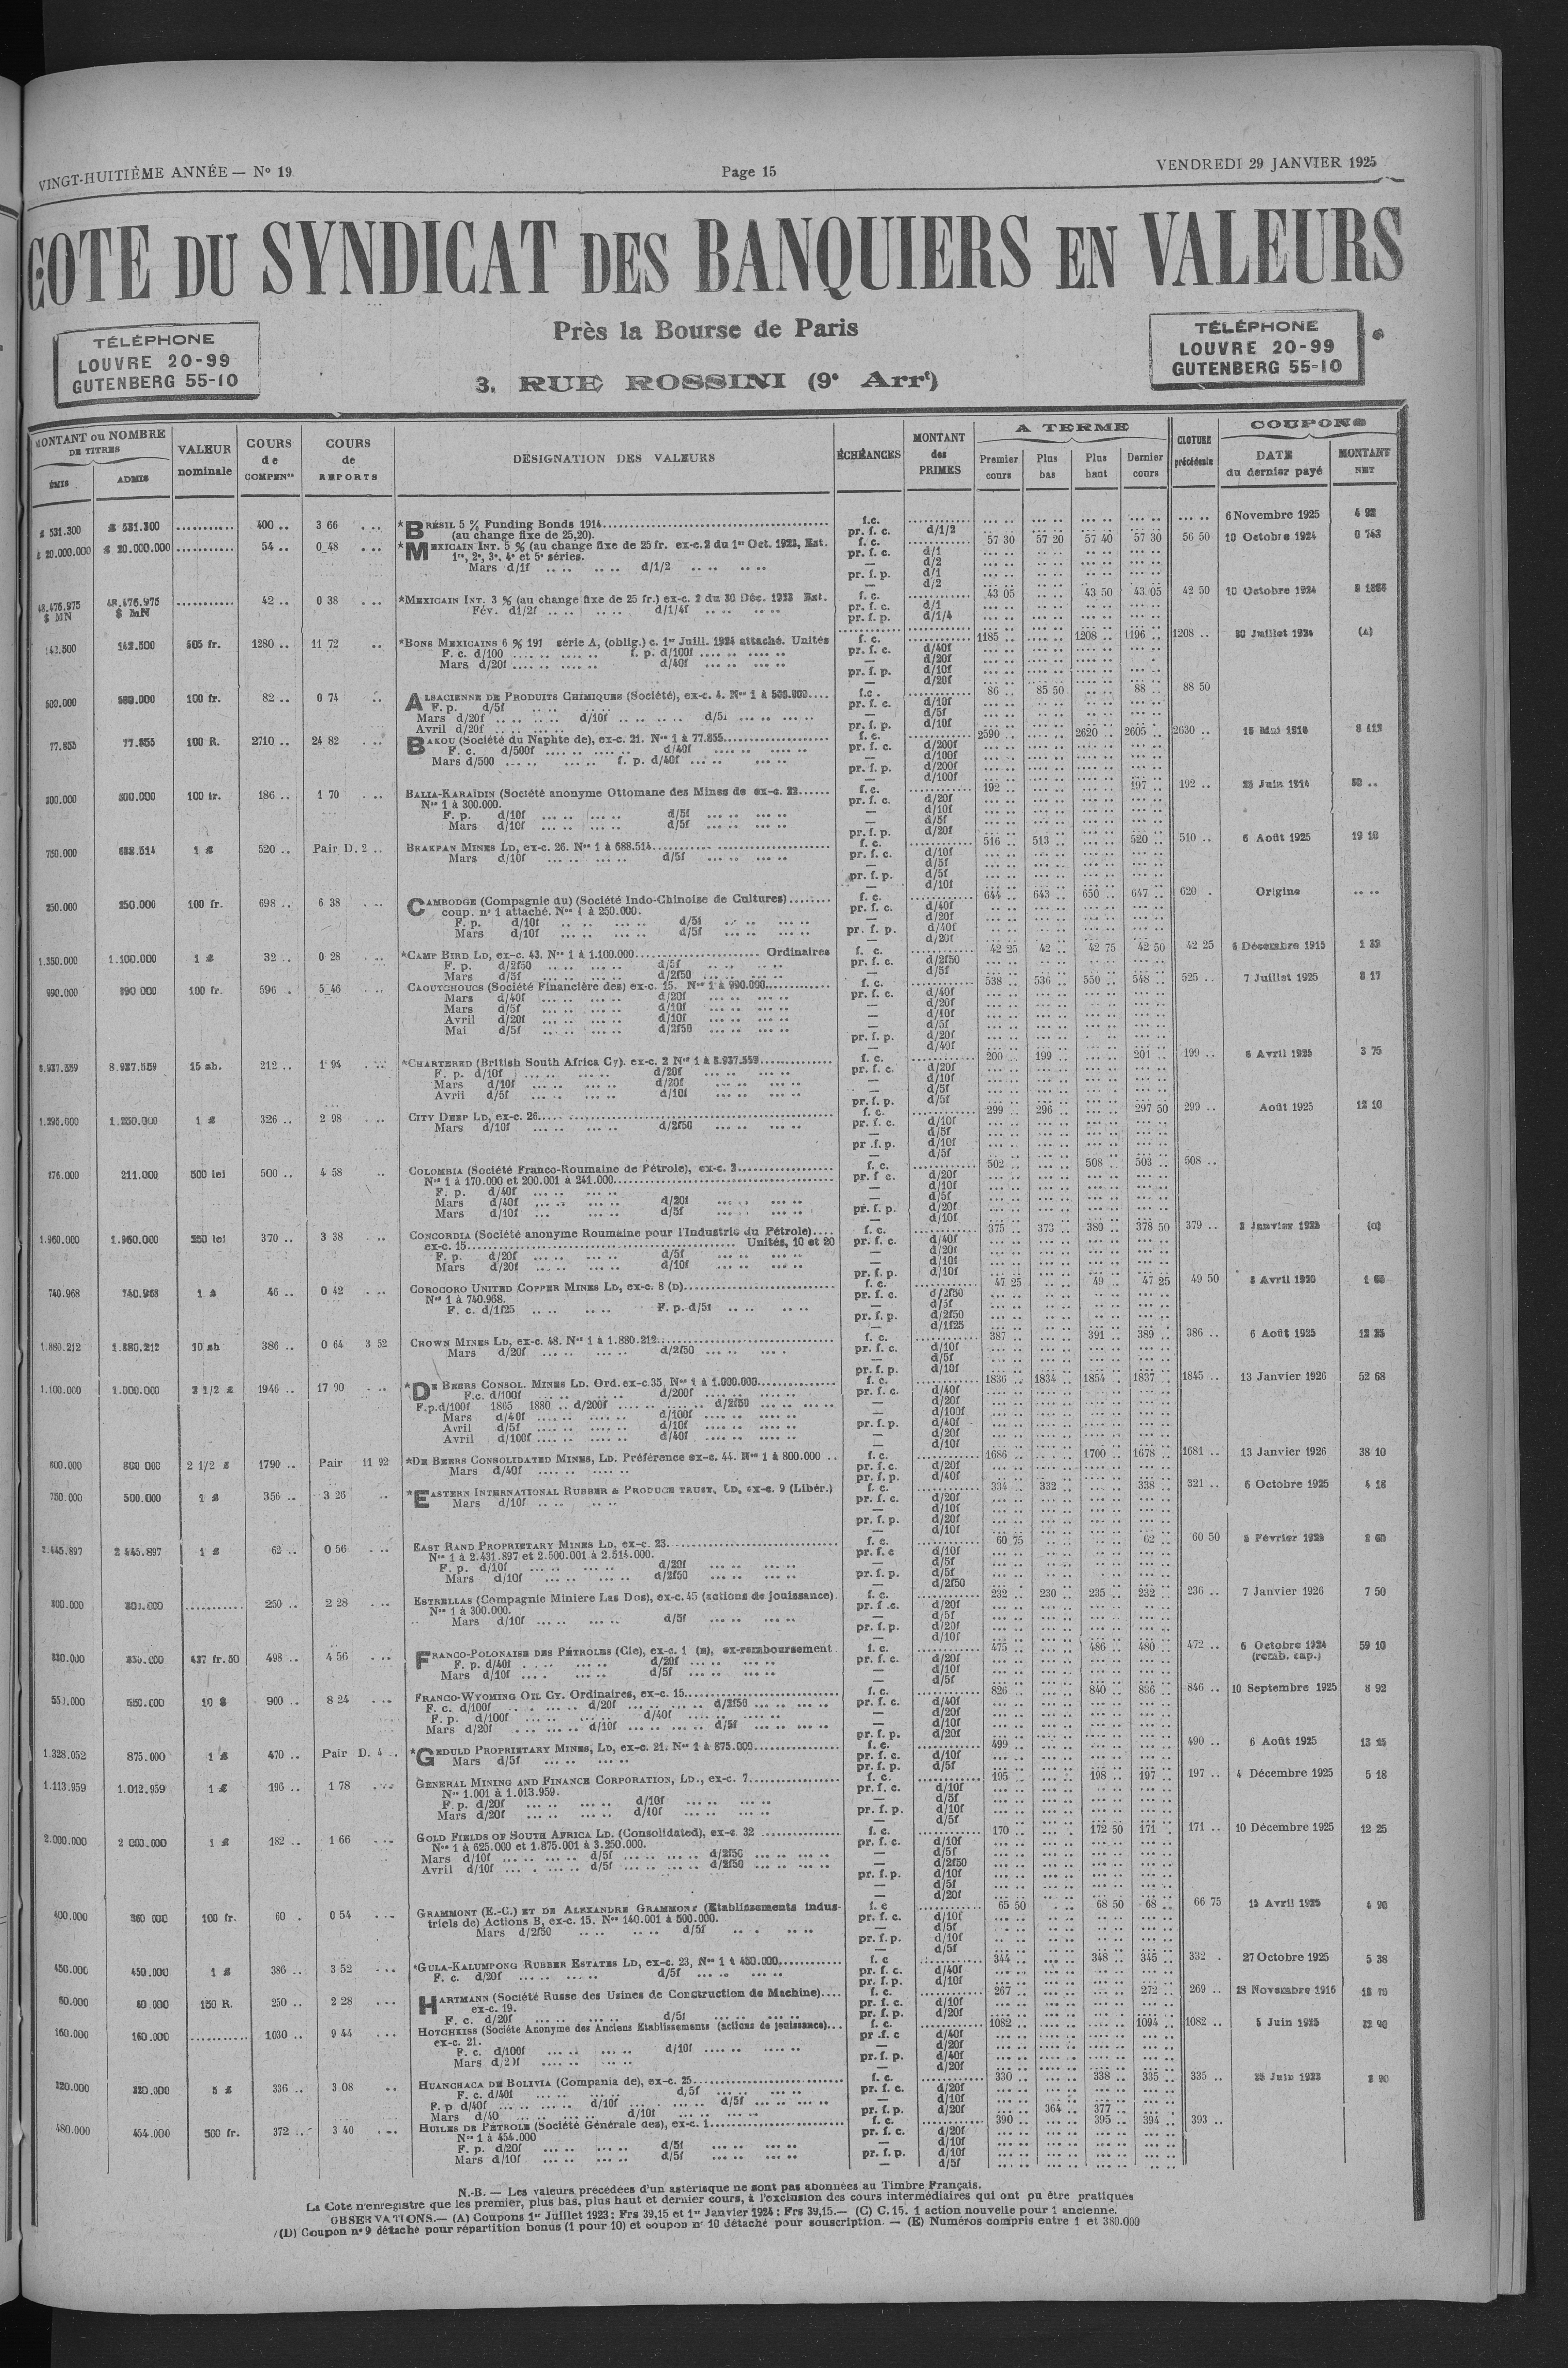 VINGT-HUITIÈME ANNÉE — N° 19
Page 15
VENDREDI 29 JANVIER 1925
COTE DU SYNDICAT DES BANQUIERS EN VALEURS
Près la Bourse de Paris
3, RUE ROSSINI (9e Arrt)
TÉLÉPHONE
LOUVRE 20-99
GUTENBERG 55-10
TÉLÉPHONE
LOUVRE 20-99
GUTENBERG 55-10
MONTANT ou NOMBRE DE TITRES
ÉMIS
ADMIS
VALEUR nominale
COURS de COMPENon
COURS de REPORTS
DÉSIGNATION DES VALEURS
ÉCHÉANCES
MONTANT des PRIMES
A TERME
Premier cours
Plus bas
Plus haut
Dernier cours
CLOTURE précédente
COUPONS
DATE du dernier payé
MONTANT NET
£ 531.300 £ 531.300 400 .. 3 66 *BRÉSIL 5 % Funding Bonds 1914 f.c. 6 Novembre 1925 4 92
(au change fixe de 25,20). pr. f. c. d/1/2
£ 20.000.000 £ 20.000.000 54 .. 0 48 *MEXICAIN INT. 5 % (au change fixe de 25 fr. ex-c.2 du 1er Oct. 1923, Est. f. c. 57 30 57 20 57 40 57 30 56 50 10 Octobre 1924 0 743
1re, 2e, 3e, 4e et 5e séries. pr. f. c. d/1
Mars d/1f d/1/2 — d/2
pr. f. p. d/1
— d/2
48.476.975 $ MN 48.476.975 $ MN 42 .. 0 38 *MEXICAIN INT. 3 % (au change fixe de 25 fr.) ex-c. 2 du 30 Déc. 1923 Est. f. c. 43 05 43 50 43 05 42 50 10 Octobre 1924
Fév. d1/2f d/1/4f pr. f. c. d/1
pr. f. p. d/1/4
142.500 142.500 505 fr. 1280 .. 11 72 *BONS MEXICAINS 6 % 191 série A, (oblig.) c. 1er Juill. 1924 attaché. Unités f. c. 1185 .. 1208 .. 1196 .. 1208 .. 30 Juillet 1924 (A)
F. c. d/100 f. p. d/100f pr. f. c. d/40f
Mars d/20f d/40f — d/20f
pr. f. p. d/10f
— d/20f
500.000 500.000 100 fr. 82 .. 0 74 ALSACIENNE DE PRODUITS CHIMIQUES (Société), ex-c. 4. Nos 1 à 500.000 f.c. 86 .. 85 50 88 .. 88 50
F. p. d/5f pr. f. c. d/10f
Mars d/20f d/10f d/5f — d/5f
Avril d/20f pr. f. p. d/10f
77.855 77.855 100 R. 2710 .. 24 82 BAKOU (Société du Naphte de), ex-c. 21. Nos 1 à 77.855 f. c. 2590 .. 2620 .. 2605 .. 2630 .. 15 Mai 1918 8 412
F. c. d/500f d/40f pr. f. c. d/200f
Mars d/500 f. p. d/40f — d/100f
pr. f. p. d/200f
— d/100f
300.000 300.000 100 fr. 186 .. 1 70 BALIA-KARAÏDIN (Société anonyme Ottomane des Mines de ex-c. 22 f. c. 192 .. 197 .. 192 .. 25 Juin 1914 30 ..
Nos 1 à 300.000. pr. f. c. d/20f
F. p. d/10f d/5f — d/10f
Mars d/10f d/5f — d/5f
pr. f. p. d/20f
750.000 688.514 1 £ 520 .. Pair D. 2 .. BRAKPAN MINES LD, ex-c. 26. Nos 1 à 688.514 f. c. 516 .. 513 .. 520 .. 510 .. 6 Août 1925 19 10
Mars d/10f d/5f pr. f. c. d/10f
— d/5f
pr. f. p. d/5f
— d/10f
250.000 250.000 100 fr. 698 .. 6 38 CAMBODGE (Compagnie du) (Société Indo-Chinoise de Cultures) f. c. 644 .. 643 .. 650 .. 647 .. 620 . Origine
coup. no 1 attaché. Nos 1 à 250.000. pr. f. c. d/40f
F. p. d/10f d/5f — d/20f
Mars d/10f d/5f pr. f. p. d/40f
— d/20f
1.350.000 1.100.000 1 £ 32 .. 0 28 *CAMP BIRD LD, ex-c. 43. Nos 1 à 1.100.000 Ordinaires f. c. 42 25 42 .. 42 75 42 50 42 25 6 Décembre 1915 1 22
F. p. d/2f50 d/5f pr. f. c. d/2f50
Mars d/5f d/2f50 — d/5f
990.000 990 000 100 fr. 596 . 5 46 CAOUTCHOUCS (Société Financière des) ex-c. 15. Nos 1 à 990.000 f. c. 538 .. 536 .. 550 .. 548 .. 525 .. 7 Juillet 1925 8 17
Mars d/40f d/20f pr. f. c. d/40f
Mars d/5f d/10f — d/20f
Avril d/20f d/10f — d/10f
Mai d/5f d/2f50 — d/5f
pr. f. p. d/20f
— d/40f
8.937.559 8.937.559 15 sh. 212 .. 1 94 *CHARTERED (British South Africa Cy). ex-c. 2 Nos 1 à 8.937.559 f. c. 200 .. 199 .. 201 .. 199 .. 6 Avril 1925 3 75
F. p. d/10f d/20f pr. f. c. d/20f
Mars d/10f d/20f — d/10f
Avril d/5f d/10f — d/5f
pr. f. p. d/5f
1.295.000 1.250.000 1 £ 326 .. 2 98 CITY DEEP LD, ex-c. 26 f. c. 299 .. 296 .. 297 50 299 .. Août 1925 12 10
Mars d/10f d/2f50 pr. f. c. d/10f
— d/5f
pr .f. p. d/10f
— d/5f
276.000 211.000 500 lei 500 .. 4 58 COLOMBIA (Société Franco-Roumaine de Pétrole), ex-c. 3 f. c. 502 .. 508 .. 503 .. 508 ..
Nos 1 à 170.000 et 200.001 à 241.000 pr. f c. d/20f
F. p. d/40f — d/10f
Mars d/40f d/20f — d/5f
Mars d/10f d/5f pr. f. p. d/20f
— d/10f
1.960.000 1.960.000 250 lei 370 .. 3 38 CONCORDIA (Société anonyme Roumaine pour l'Industrie du Pétrole) f. c. 375 .. 373 .. 380 .. 378 50 379 .. 2 Janvier 1925 (C)
ex-c. 15 Unités, 10 et 20 pr. f. c. d/40f
F. p. d/20f d/5f — d/20f
Mars d/20f d/10f — d/10f
pr. f. p. d/10f
740.968 740.968 1 £ 46 .. 0 42 COROCORO UNITED COPPER MINES LD, ex-c. 8 (D) f. c. 47 25 49 .. 47 25 49 50 8 Avril 1920
Nos 1 à 740.968. pr. f. c. d/2f50
F. c. d/1f25 F. p. d/5f — d/5f
pr. f. p. d/2f50
— d/1f25
1.880.212 1.880.212 10 sh 386 .. 0 64 3 52 CROWN MINES LD, ex-c. 48. Nos 1 à 1.880.212 f. c. 387 .. 391 .. 389 .. 386 .. 6 Août 1925 12 25
Mars d/20f d/2f50 pr. f. c. d/10f
— d/5f
pr. f. p. d/10f
1.100.000 1.000.000 2 1/2 £ 1946 .. 17 90 *DE BEERS CONSOL. MINES LD. Ord. ex-c.35, Nos 1 à 1.000.000 f. c. 1836 .. 1834 .. 1854 .. 1837 .. 1845 .. 13 Janvier 1926 52 68
F.c. d/100f d/200f pr. f. c. d/40f
F.p.d/100f 1865 1880 .. d/200f d/2f50 — d/20f
Mars d/40f d/100f — d/100f
Avril d/5f d/10f pr. f. p. d/40f
Avril d/100f d/40f — d/20f
— d/10f
800.000 800 000 2 1/2 £ 1790 .. Pair 11 92 *DE BEERS CONSOLIDATED MINES, LD. Préférence ex-c. 44. Nos 1 à 800.000 .. f. c. 1686 .. 1700 .. 1678 .. 1681 .. 13 Janvier 1926 38 10
Mars d/40f pr. f. c. d/20f
pr. f. p. d/40f
750.000 500.000 1 £ 356 .. 3 26 *EASTERN INTERNATIONAL RUBBER & PRODUCE TRUST, LD, ex-c. 9 (Libér.) f. c. 334 .. 332 .. 338 .. 321 .. 6 Octobre 1925 4 18
Mars d/10f pr. f. c. d/20f
— d/10f
pr. f. p. d/20f
— d/10f
2.445.897 2 445.897 1 £ 62 .. 0 56 EAST RAND PROPRIETARY MINES LD, ex-c. 23 f. c. 60 75 62 .. 60 50 6 Février 1923 2 60
Nos 1 à 2.431.897 et 2.500.001 à 2.514.000. pr. f. c d/10f
F. p. d/10f d/20f — d/5f
Mars d/10f d/2f50 pr. f. p. d/5f
— d/2f50
300.000 300.000 250 .. 2 28 ESTRELLAS (Compagnie Miniere Las Dos), ex-c. 45 (actions de jouissance). f. c. 232 .. 230 .. 235 .. 232 .. 236 .. 7 Janvier 1926 7 50
Nos 1 à 300.000. pr. f .c. d/20f
Mars d/10f d/5f — d/5f
pr. f. p. d/20f
— d/10f
437 fr. 50 498 .. 4 56 FRANCO-POLONAISE DES PÉTROLES (Cie), ex-c. 1 (E), ex-remboursement f. c. 475 .. 486 .. 480 .. 472 .. 6 Octobre 1924 59 10
F. p. d/40f d/20f pr. f. c. d/20f (remb. cap.)
Mars d/10f d/5f — d/10f
— d/5f
550.000 550.000 10 $ 900 .. 8 24 FRANCO-WYOMING OIL CY. Ordinaires, ex-c. 15 f. c. 826 .. 840 .. 836 .. 846 .. 10 Septembre 1925 8 92
F. c. d/100f d/20f d/2f50 pr. f. c. d/40f
F. p. d/100f d/40f — d/20f
Mars d/20f d/10f d/5f — d/10f
pr. f. p. d/20f
1.328.052 875.000 1 £ 470 .. Pair D. 4 .. *GEDULD PROPRIETARY MINES, LD, ex-c. 21. Nos 1 à 875.000 f. c. 499 .. 490 .. 6 Août 1925 13 25
Mars d/5f pr. f. c. d/10f
pr. f. p. d/5f
1.113.959 1.012.959 1 £ 196 .. 1 78 GENERAL MINING AND FINANCE CORPORATION, LD., ex-c. 7 f. c. 195 .. 198 .. 197 .. 197 .. 4 Décembre 1925 5 18
Nos 1.001 à 1.013.959. pr. f. c. d/10f
F. p. d/20f d/10f — d/5f
Mars d/20f d/10f pr. f. p. d/10f
— d/5f
2.000.000 2 000.000 1 £ 182 .. 1 66 GOLD FIELDS OF SOUTH AFRICA LD. (Consolidated), ex-c. 32 f. c. 170 .. 172 50 171 .. 171 .. 10 Décembre 1925 12 25
Nos 1 à 625.000 et 1.875.001 à 3.250.000. pr. f. c. d/10f
Mars d/10f d/5f d/2f50 — d/5f
Avril d/10f d/5f d/2f50 — d/2f50
pr. f. p. d/10f
— d/5f
— d/20f
400.000 360 000 100 fr. 60 . 0 54 GRAMMONT (E.-C.) ET DE ALEXANDRE GRAMMONT (Etablissements indus- f. c 65 50 68 50 68 .. 66 75 15 Avril 1925 4 20
triels de) Actions B, ex-c. 15. Nos 140.001 à 500.000. pr. f. c. d/10f
Mars d/2f50 d/5f — d/5f
pr. f. p. d/10f
— d/5f
450.000 450.000 1 £ 386 .. 3 52 *GULA-KALUMPONG RUBBER ESTATES LD, ex-c. 23, Nos 1 à 450.000 f. c 344 .. 348 .. 345 .. 332 . 27 Octobre 1925 5 38
F. c. d/20f d/5f pr. f. c. d/40f
pr. f. p. d/10f
60.000 60 000 150 R. 250 .. 2 28 HARTMANN (Société Russe des Usines de Construction de Machine) f. c. 267 .. 272 .. 269 .. 23 Novembre 1916
ex-c. 19. pr. f. c. d/10f
F. c. d/20f d/5f pr. f. p. d/20f
160.000 160.000 1030 .. 9 44 HOTCHKISS (Société Anonyme des Anciens Etablissements (actions de jouissance) f. c. 1082 .. 1094 .. 1082 .. 5 Juin 1925 32 90
ex-c. 21. pr .f. c d/40f
F. c. d/100f d/10f — d/20f
Mars d/20f pr. f. p. d/40f
— d/20f
320.000 320.000 5 £ 336 .. 3 08 HUANCHACA DE BOLIVIA (Compania de), ex-c. 25 f. c. 330 .. 338 .. 335 .. 335 .. 25 Juin 1923 2 90
F. c. d/40f d/5f pr. f. c. d/20f
F. p d/40f d/10f d/5f — d/10f
Mars d/40 d/10f pr. f. p. d/20f 364 .. 377 ..
480.000 454.000 500 fr. 372 .. 3 40 HUILES DE PÉTROLE (Société Générale des), ex-c. 1 f. c. 390 .. 395 .. 394 .. 393 ..
Nos 1 à 454.000 pr. f. c. d/20f
F. p. d/20f d/5f — d/10f
Mars d/10f d/5f pr. f. p. d/10f
— d/5f
N.-B. — Les valeurs précédées d'un astérisque ne sont pas abonnées au Timbre Français.
La Cote n'enregistre que les premier, plus bas, plus haut et dernier cours, à l'exclusion des cours intermédiaires qui ont pu être pratiqués
OBSERVATIONS.— (A) Coupons 1er Juillet 1923 : Frs 39,15 et 1er Janvier 1924 : Frs 39,15.— (C) C. 15. 1 action nouvelle pour 1 ancienne.
(D) Coupon no 9 détaché pour répartition bonus (1 pour 10) et coupon no 10 détaché pour souscription. — (E) Numéros compris entre 1 et 380.000